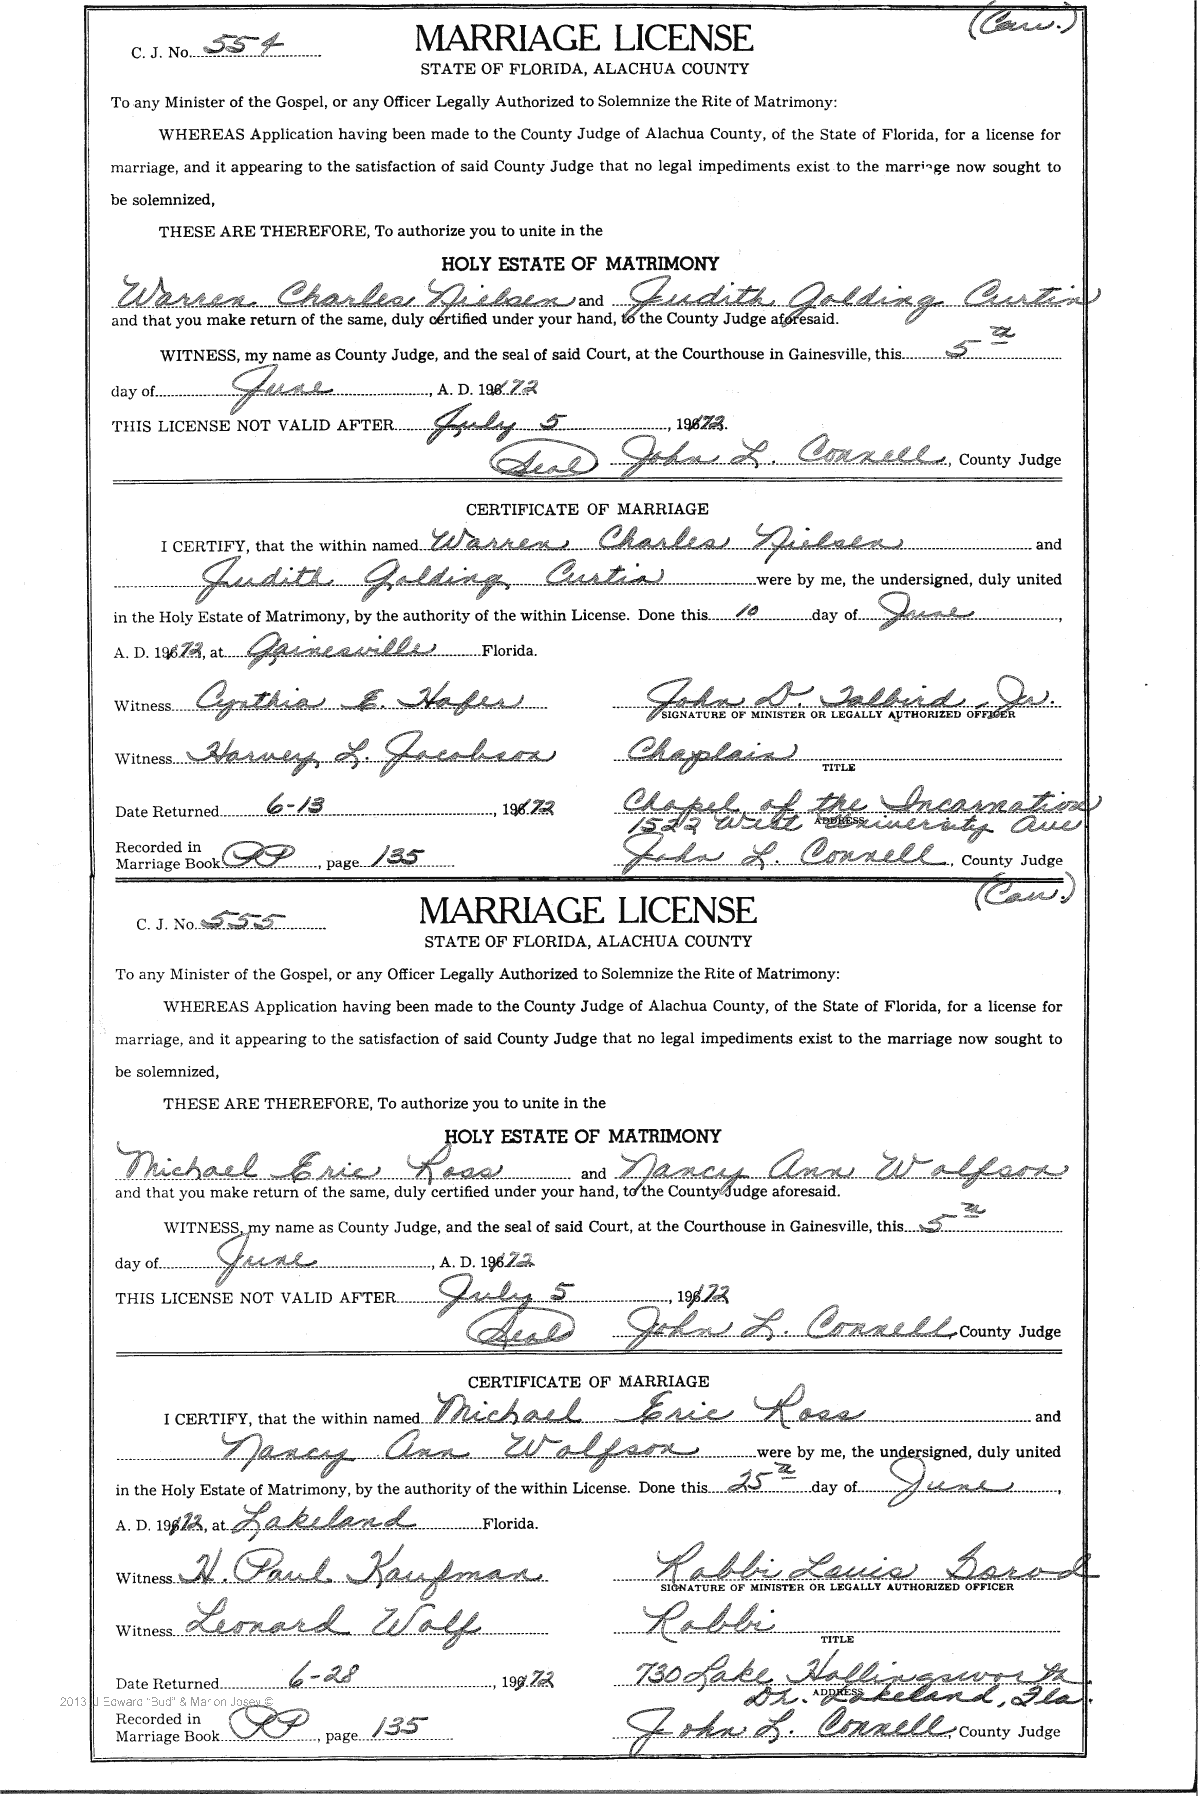 (Cau.)
C. J. No. 554 MARRIAGE LICENSE
STATE OF FLORIDA, ALACHUA COUNTY
To any Minister of the Gospel, or any Officer Legally Authorized to Solemnize the Rite of Matrimony:
WHEREAS Application having been made to the County Judge of Alachua County, of the State of Florida, for a license for
marriage, and it appearing to the satisfaction of said County Judge that no legal impediments exist to the marriage now sought to
be solemnized,
THESE ARE THEREFORE, To authorize you to unite in the
HOLY ESTATE OF MATRIMONY
Warren Charles Nielsen and Judith Golding Curtin
and that you make return of the same, duly certified under your hand, to the County Judge aforesaid.
WITNESS, my name as County Judge, and the seal of said Court, at the Courthouse in Gainesville, this 5th
day of June, A. D. 1972
THIS LICENSE NOT VALID AFTER July 5, 1972.
(Seal) John L. Connell, County Judge
CERTIFICATE OF MARRIAGE
I CERTIFY, that the within named Warren Charles Nielsen and
Judith Golding Curtin were by me, the undersigned, duly united
in the Holy Estate of Matrimony, by the authority of the within License. Done this 10 day of June,
A. D. 1972, at Gainesville Florida.
Witness Cynthia E. Hafer John D. Talbird, Jr.
SIGNATURE OF MINISTER OR LEGALLY AUTHORIZED OFFICER
Witness Harvey L. Jacobson Chaplain
TITLE
Date Returned 6-13, 1972 Chapel of the Incarnation
1522 West University Ave
ADDRESS
Recorded in
Marriage Book PP, page 135 John L. Connell, County Judge
(Cau.)
C. J. No. 555 MARRIAGE LICENSE
STATE OF FLORIDA, ALACHUA COUNTY
To any Minister of the Gospel, or any Officer Legally Authorized to Solemnize the Rite of Matrimony:
WHEREAS Application having been made to the County Judge of Alachua County, of the State of Florida, for a license for
marriage, and it appearing to the satisfaction of said County Judge that no legal impediments exist to the marriage now sought to
be solemnized,
THESE ARE THEREFORE, To authorize you to unite in the
HOLY ESTATE OF MATRIMONY
Michael Eric Ross and Nancy Ann Wolfson
and that you make return of the same, duly certified under your hand, to the County Judge aforesaid.
WITNESS, my name as County Judge, and the seal of said Court, at the Courthouse in Gainesville, this 5th
day of June, A. D. 1972
THIS LICENSE NOT VALID AFTER July 5, 1972
(Seal) John L. Connell, County Judge
CERTIFICATE OF MARRIAGE
I CERTIFY, that the within named Michael Eric Ross and
Nancy Ann Wolfson were by me, the undersigned, duly united
in the Holy Estate of Matrimony, by the authority of the within License. Done this 25th day of June,
A. D. 1972, at Lakeland Florida.
Witness H. Paul Kaufman Rabbi Louis Gorod
SIGNATURE OF MINISTER OR LEGALLY AUTHORIZED OFFICER
Witness Leonard Wolf Rabbi
TITLE
Date Returned 6-28, 1972 730 Lake Hollingsworth
Dr. Lakeland, Fla.
ADDRESS
2013 J Edward "Bud" & Marion Josey ©
Recorded in
Marriage Book PP, page 135 John L. Connell, County Judge